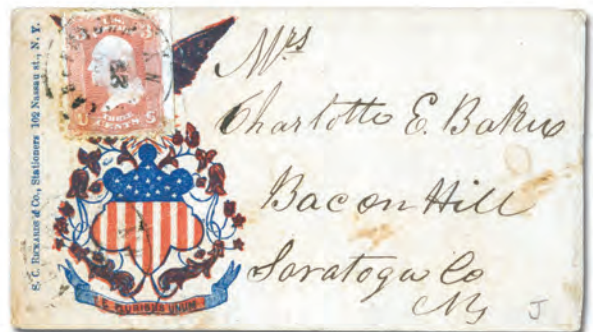 S. C. RICKARDS & Co., Stationers 102 Nassau st., N. Y.
3 3
THREE
CENTS
E PLURIBUS UNUM
Mrs
Charlotte E. Baker
Bacon Hill
Saratoga Co
NY
J